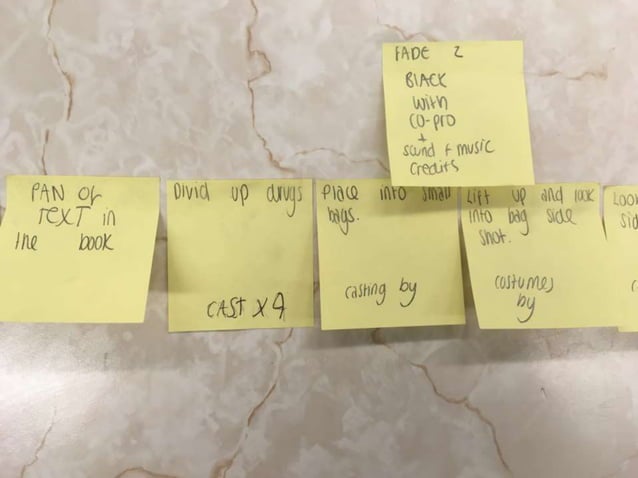 FADE 2
BLACK
with
CO-PRO
+
sound + music
credits
PAN OF
TEXT in
the book
Divid up drugs
CAST X 4
Place into small
bags.
casting by
Lift up and look
into bag side
shot.
costumes
by